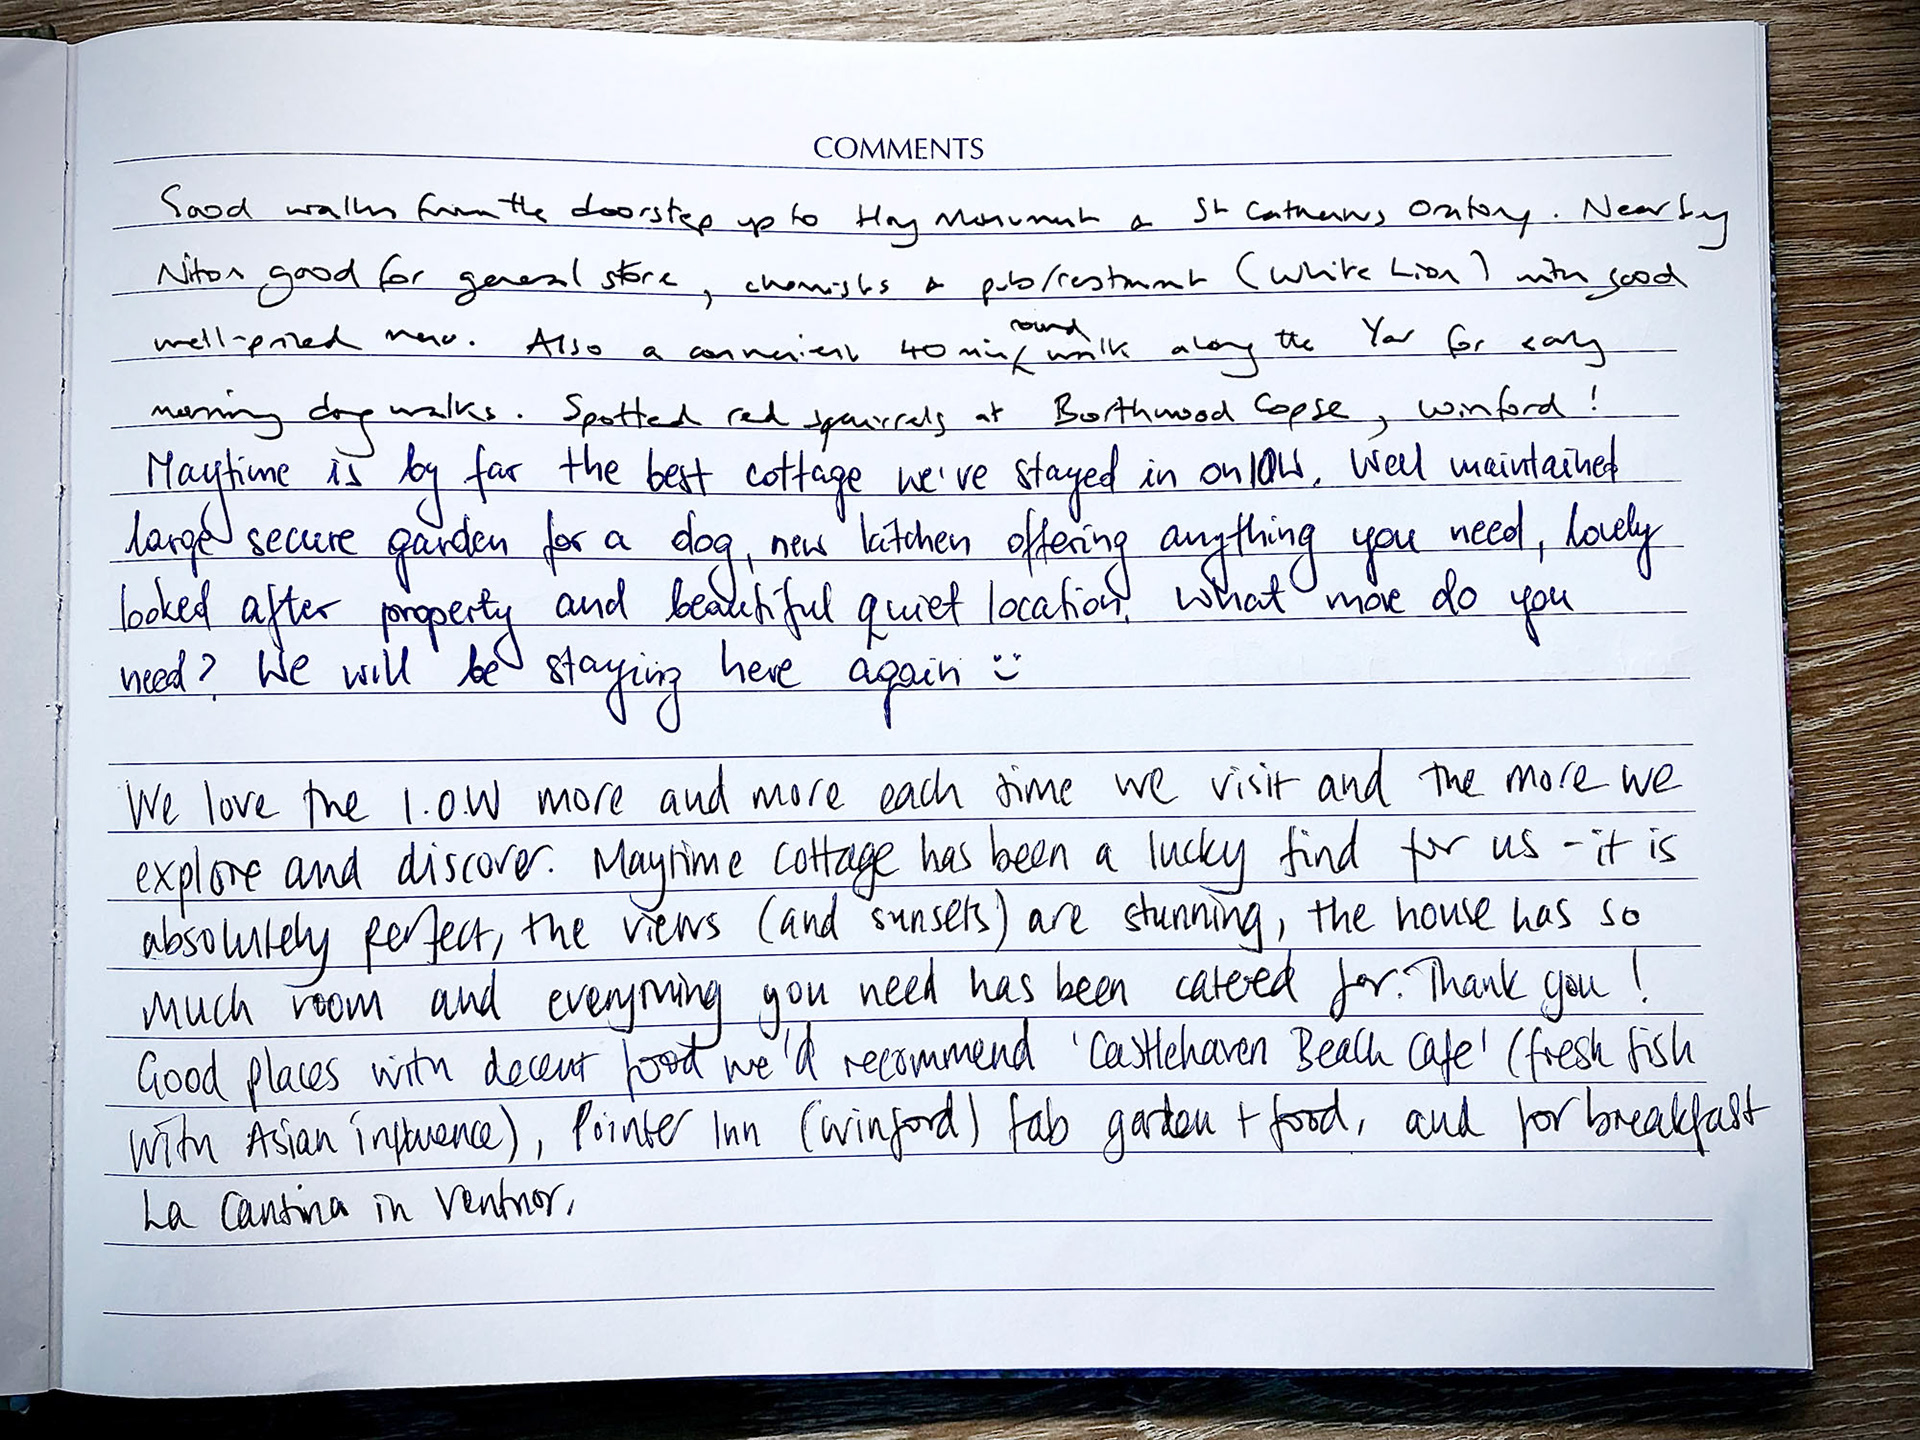 COMMENTS
Good walks from the doorstep up to Hoy Monument & St Catherines Oratory. Nearby
Niton good for general store, chemists & pub/restaurant (White Lion) with good
well-priced menu. Also a convenient 40 min round walk along the Yar for early
morning dog walks. Spotted red squirrels at Borthwood Copse, Winford!
Maytime is by far the best cottage we've stayed in on IOW. Well maintained
large secure garden for a dog, new kitchen offering anything you need, lovely
looked after property and beautiful quiet location. What more do you
need? We will be staying here again :)
We love the I.O.W more and more each time we visit and the more we
explore and discover. Maytime Cottage has been a lucky find for us - it is
absolutely perfect, the views (and sunsets) are stunning, the house has so
much room and everything you need has been catered for. Thank you!
Good places with decent food we'd recommend 'Castlehaven Beach Cafe' (fresh fish
with Asian influence), Pointer Inn (Winford) fab garden + food, and for breakfast
La Cantina in Ventnor.